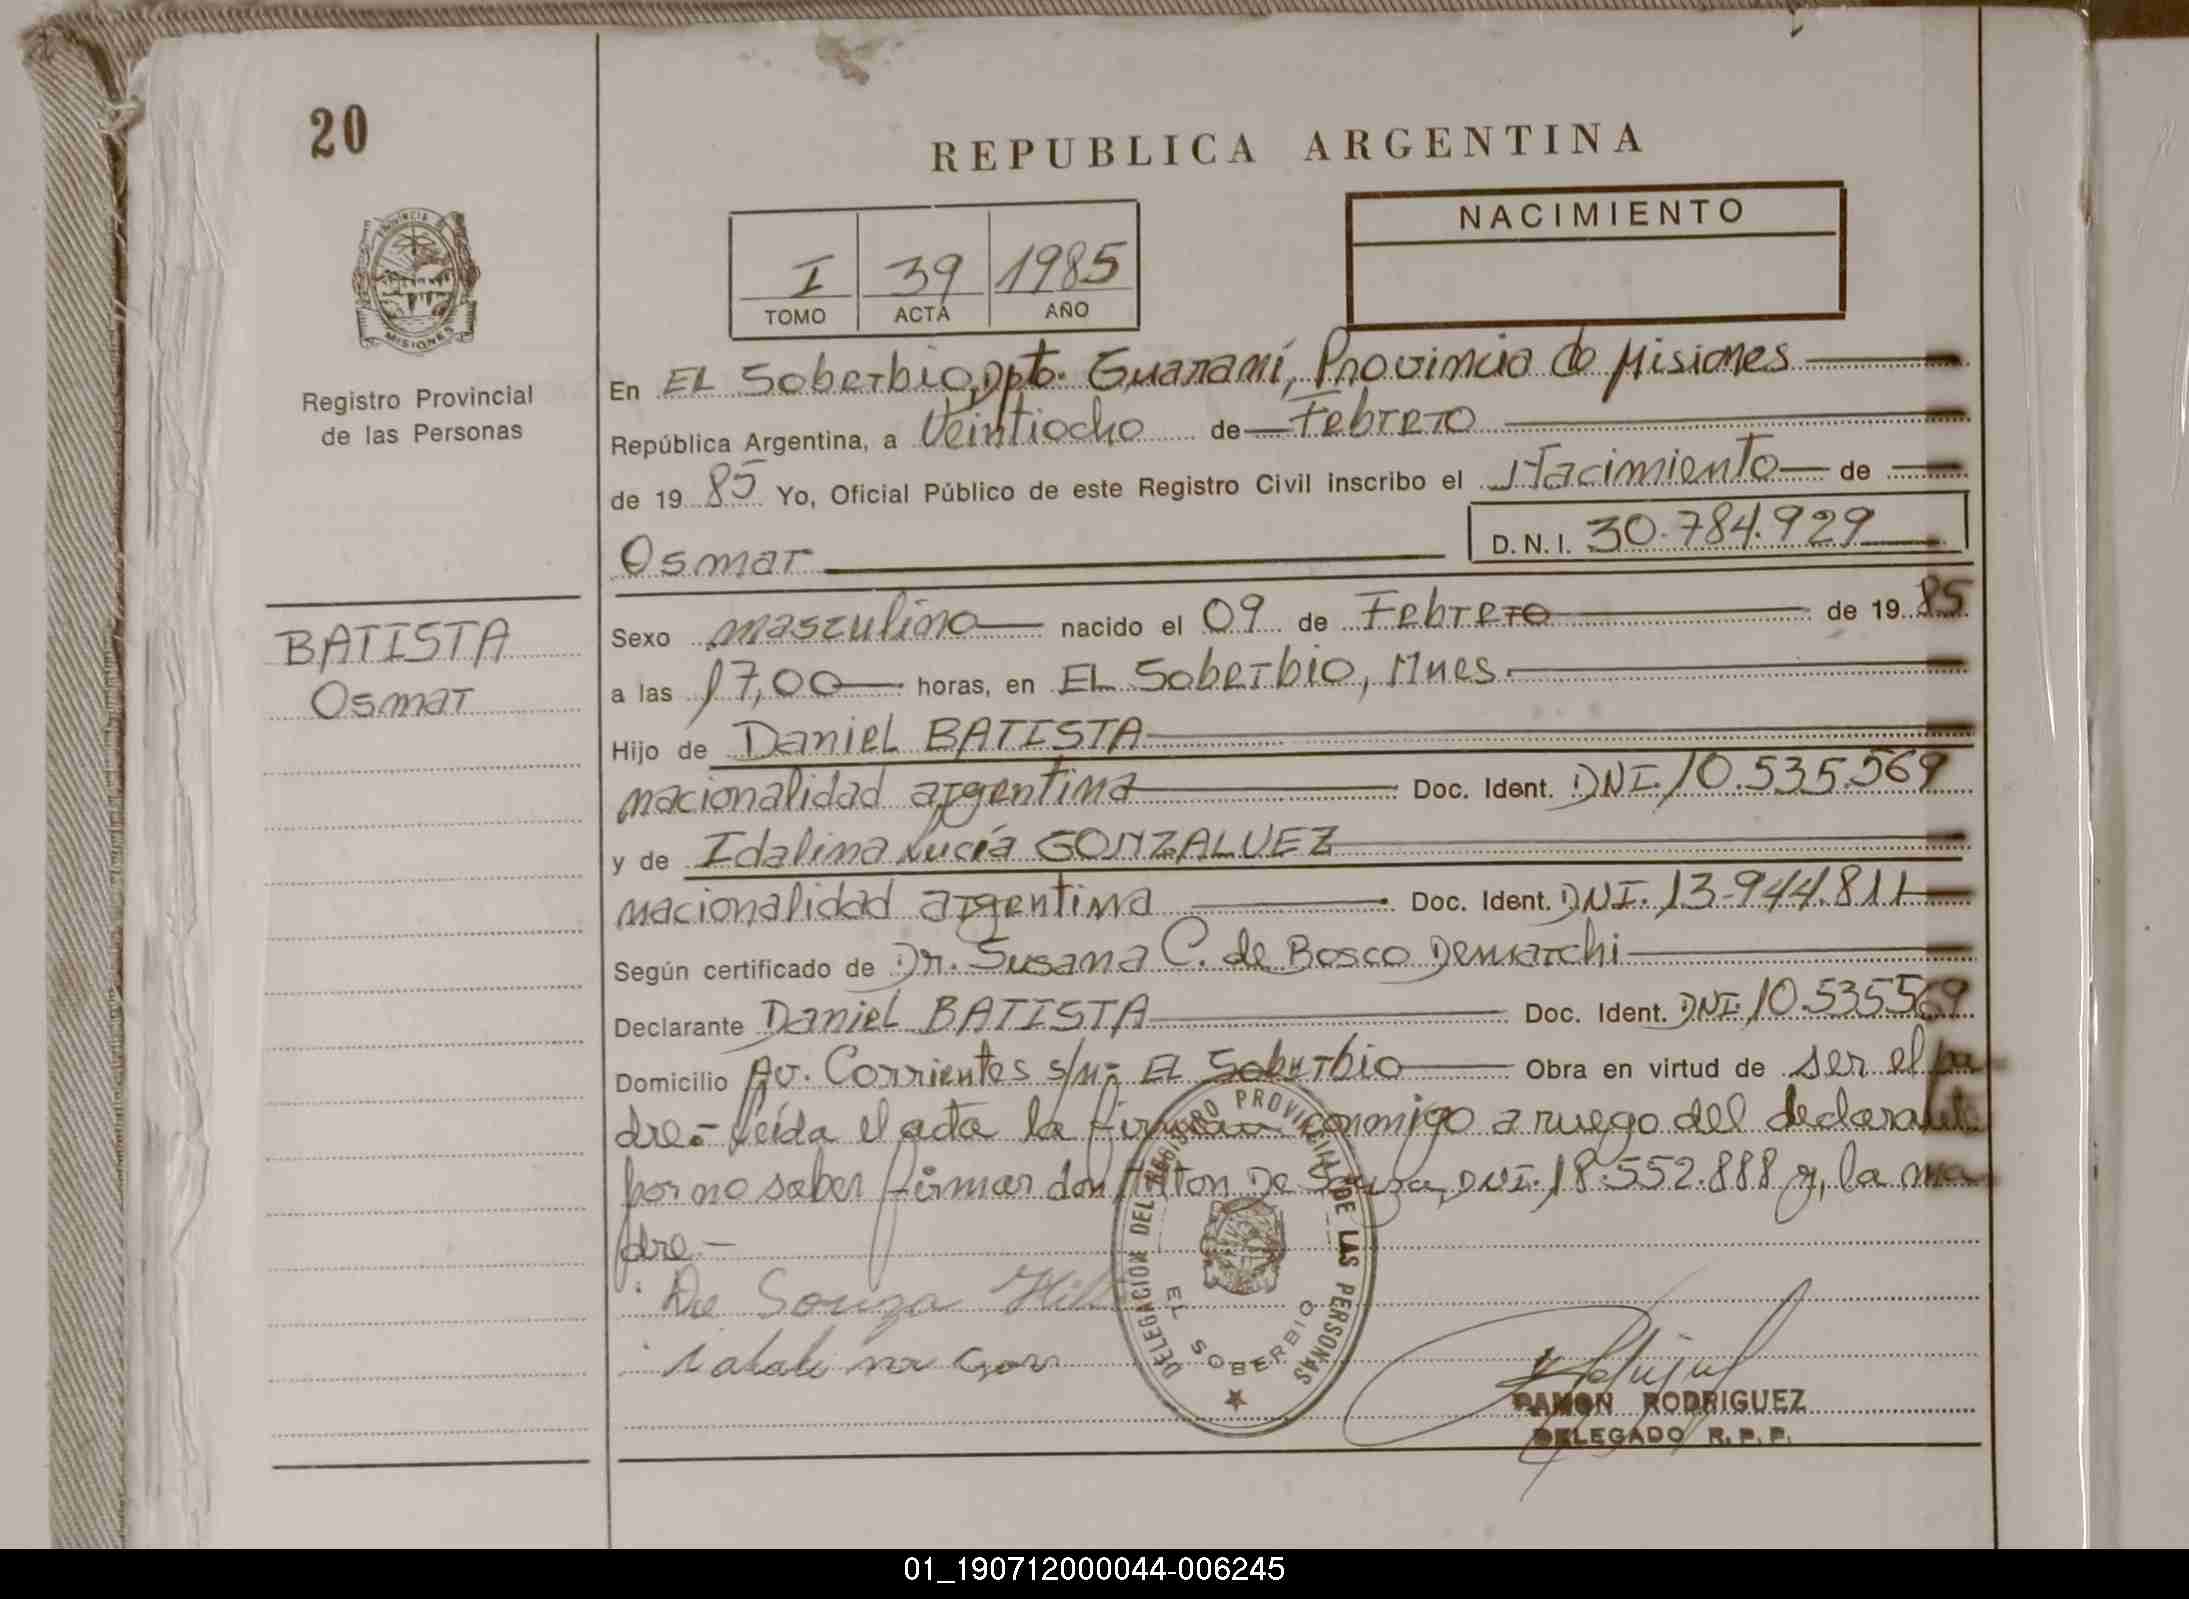 20
PROVINCIA
MISIONES
Registro Provincial
de las Personas
BATISTA
Osmar
REPUBLICA ARGENTINA
I 39 1985
TOMO ACTA AÑO
NACIMIENTO
En EL Soberbio, Dpto. Guaraní, Provincia de Misiones
República Argentina, a Veintiocho de Febrero
de 19 85 Yo, Oficial Público de este Registro Civil inscribo el Nacimiento de
Osmar D.N.I. 30.784.929
Sexo masculino nacido el 09 de Febrero de 19 85
a las 17,00 horas, en EL Soberbio, Mnes.
Hijo de Daniel BATISTA
nacionalidad argentina Doc. Ident. DNI. 10.535.569
y de Idalina Lucía GONZALVEZ
nacionalidad argentina Doc. Ident. DNI. 13.944.811
Según certificado de Dr. Susana C. de Bosco Demarchi
Declarante Daniel BATISTA Doc. Ident. DNI. 10.535569
Domicilio Av. Corrientes s/n- EL Soberbio Obra en virtud de ser el pa-
dre.- Leída el acta la firman conmigo a ruego del declarante
por no saber firmar don De Souza, DNI. 18.552.888 y, la ma-
dre.-
De Souza
DELEGACION DEL REGISTRO PROVINCIAL DE LAS PERSONAS
EL SOBERBIO
RAMON RODRIGUEZ
DELEGADO R.P.P.
01_190712000044-006245